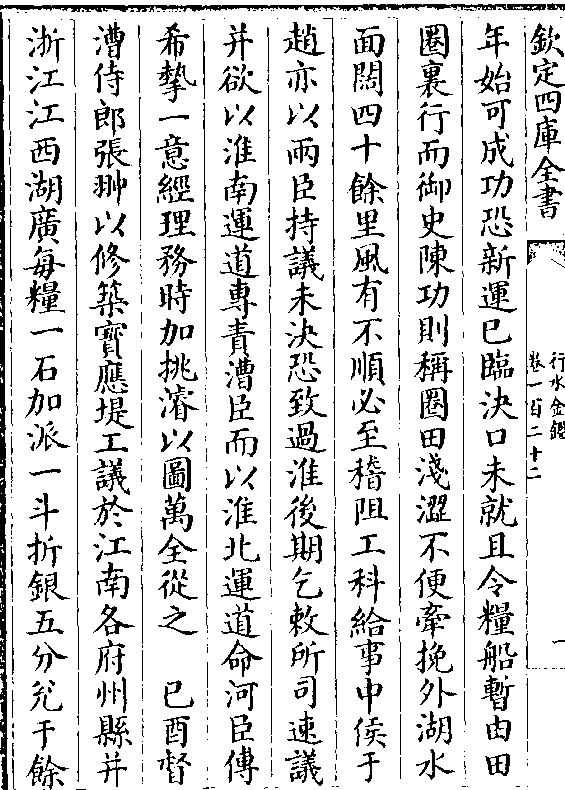 欽定四庫全書
行水金鑑
卷一百二十二
一
年始可成功恐新運已臨決口未就且令糧船暫由田
圈裏行而御史陳功則稱圈田淺澀不便牽挽外湖水
面闊四十餘里風有不順必至稽阻工科給事中侯于
趙亦以兩臣持議未決恐致過淮後期乞敕所司速議
并欲以淮南運道專責漕臣而以淮北運道命河臣傅
希摯一意經理務時加挑濬以圖萬全從之　己酉督
漕侍郎張翀以修築寶應堤工議於江南各府州縣并
浙江江西湖廣每糧一石加派一斗折銀五分兊干餘